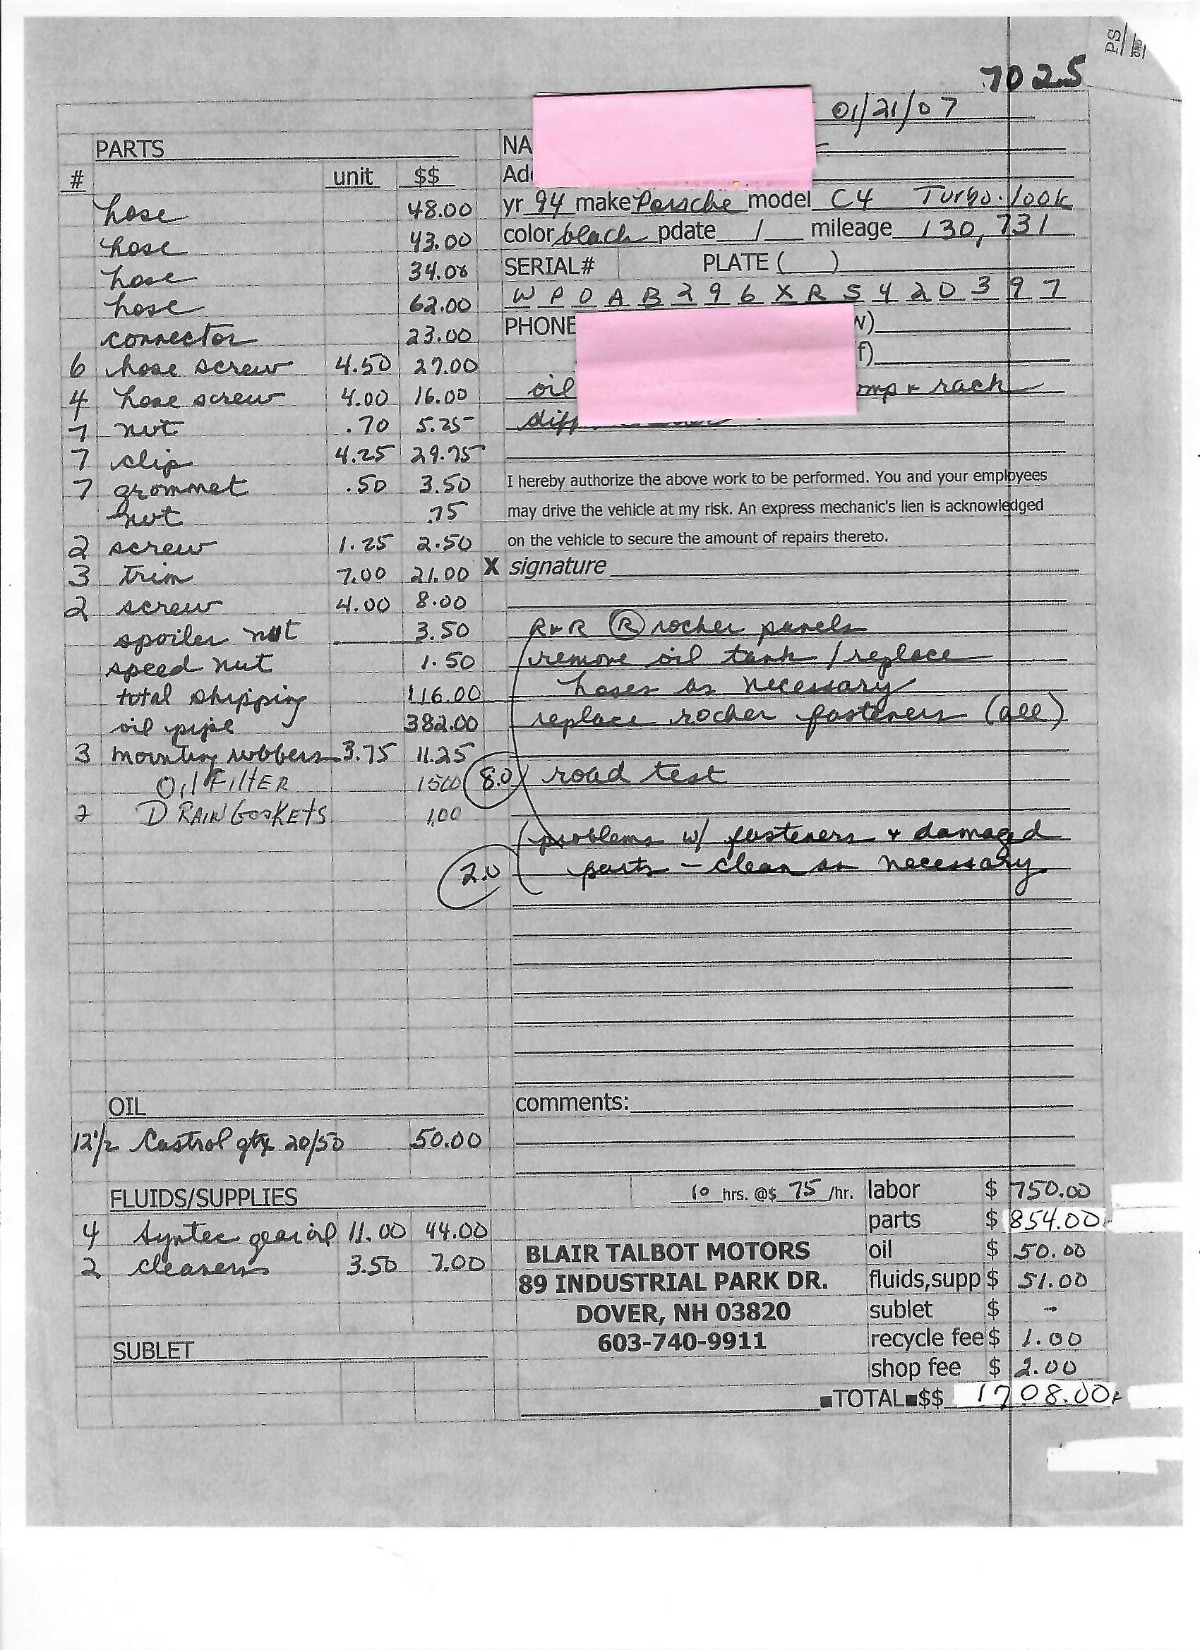 PS
7025
01/21/07
PARTS
NA
# unit $$
Ad
hose 48.00
yr 94 make Porsche model C4 Turbo look
hose 43.00
color black pdate / mileage 130,731
hose 34.00
SERIAL# PLATE ( )
hose 62.00
WP0AB296XRS420397
connector 23.00
PHONE w)
6 hose screw 4.50 27.00
f)
4 hose screw 4.00 16.00
oil mp & rack
7 nut .70 5.25
diff
7 clip 4.25 29.75
7 grommet .50 3.50
I hereby authorize the above work to be performed. You and your employees
nut .75
may drive the vehicle at my risk. An express mechanic's lien is acknowledged
2 screw 1.25 2.50
on the vehicle to secure the amount of repairs thereto.
3 trim 7.00 21.00
X signature
2 screw 4.00 8.00
spoiler nut 3.50
R&R (R) rocker panels
speed nut 1.50
remove oil tank / replace
total shipping 116.00
hoses as necessary
oil pipe 382.00
replace rocker fasteners (all)
3 mounting rubbers 3.75 11.25
Oil Filter 1500
8.0 road test
2 DRAIN GASKETS 1.00
problems w/ fasteners & damaged
2.0 parts - clean as necessary
OIL
comments:
12 1/2 Castrol qts 20/50 50.00
FLUIDS/SUPPLIES
10 hrs. @$ 75 /hr. labor $ 750.00
parts $ 854.00
4 Syntec gear oil 11.00 44.00
BLAIR TALBOT MOTORS oil $ 50.00
2 cleaners 3.50 7.00
89 INDUSTRIAL PARK DR. fluids,supp $ 51.00
DOVER, NH 03820 sublet $ -
603-740-9911 recycle fee $ 1.00
SUBLET
shop fee $ 2.00
TOTAL $$ 1708.00